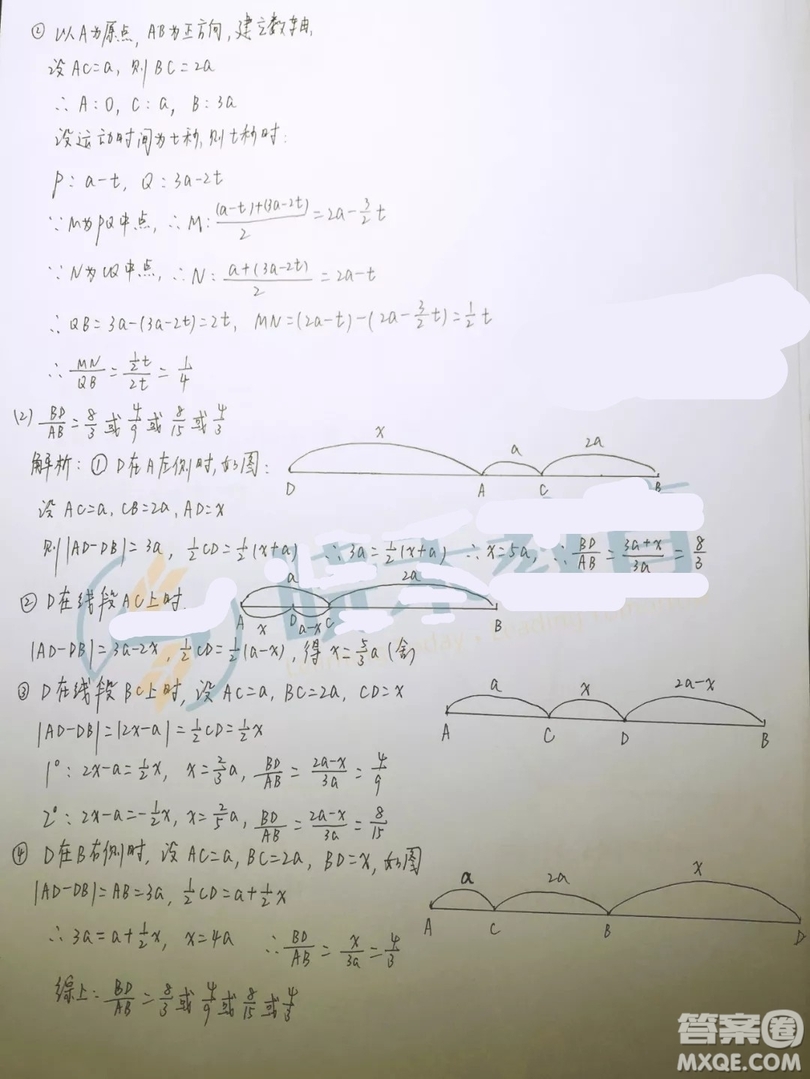 ② 以A为原点，AB为正方向，建立数轴，
设AC=a，则BC=2a
∴ A:0，C:a，B:3a
设运动时间为t秒，则t秒时：
P：a-t，Q：3a-2t
∵M为PQ中点，∴M：\frac{(a-t)+(3a-2t)}{2}=2a-\frac{3}{2}t
∵N为CQ中点，∴N：\frac{a+(3a-2t)}{2}=2a-t
∴QB=3a-(3a-2t)=2t，MN=(2a-t)-(2a-\frac{3}{2}t)=\frac{1}{2}t
∴\frac{MN}{QB}=\frac{\frac{1}{2}t}{2t}=\frac{1}{4}
(2) \frac{BD}{AB}=\frac{8}{3}或\frac{4}{9}或\frac{8}{15}或\frac{4}{3}
解析：① D在A左侧时，如图：
x a 2a
D A C B
设AC=a，CB=2a，AD=x
则|AD-DB|=3a，\frac{1}{2}CD=\frac{1}{2}(x+a) ∴3a=\frac{1}{2}(x+a) ∴x=5a，∴\frac{BD}{AB}=\frac{3a+x}{3a}=\frac{8}{3}
② D在线段AC上时.
a 2a
A D C B
x a-x
|AD-DB|=3a-2x，\frac{1}{2}CD=\frac{1}{2}(a-x)，得x=\frac{5}{3}a(舍)
③ D在线段BC上时，设AC=a，BC=2a，CD=x
a x 2a-x
A C D B
|AD-DB|=|2x-a|=\frac{1}{2}CD=\frac{1}{2}x
1°：2x-a=\frac{1}{2}x，x=\frac{2}{3}a，\frac{BD}{AB}=\frac{2a-x}{3a}=\frac{4}{9}
2°：2x-a=-\frac{1}{2}x，x=\frac{2}{5}a，\frac{BD}{AB}=\frac{2a-x}{3a}=\frac{8}{15}
④ D在B右侧时，设AC=a，BC=2a，BD=x，如图
a 2a x
A C B D
|AD-DB|=AB=3a，\frac{1}{2}CD=a+\frac{1}{2}x
∴3a=a+\frac{1}{2}x，x=4a ∴\frac{BD}{AB}=\frac{x}{3a}=\frac{4}{3}
综上：\frac{BD}{AB}=\frac{8}{3}或\frac{4}{9}或\frac{8}{15}或\frac{4}{3}
答案圈
MXQE.COM